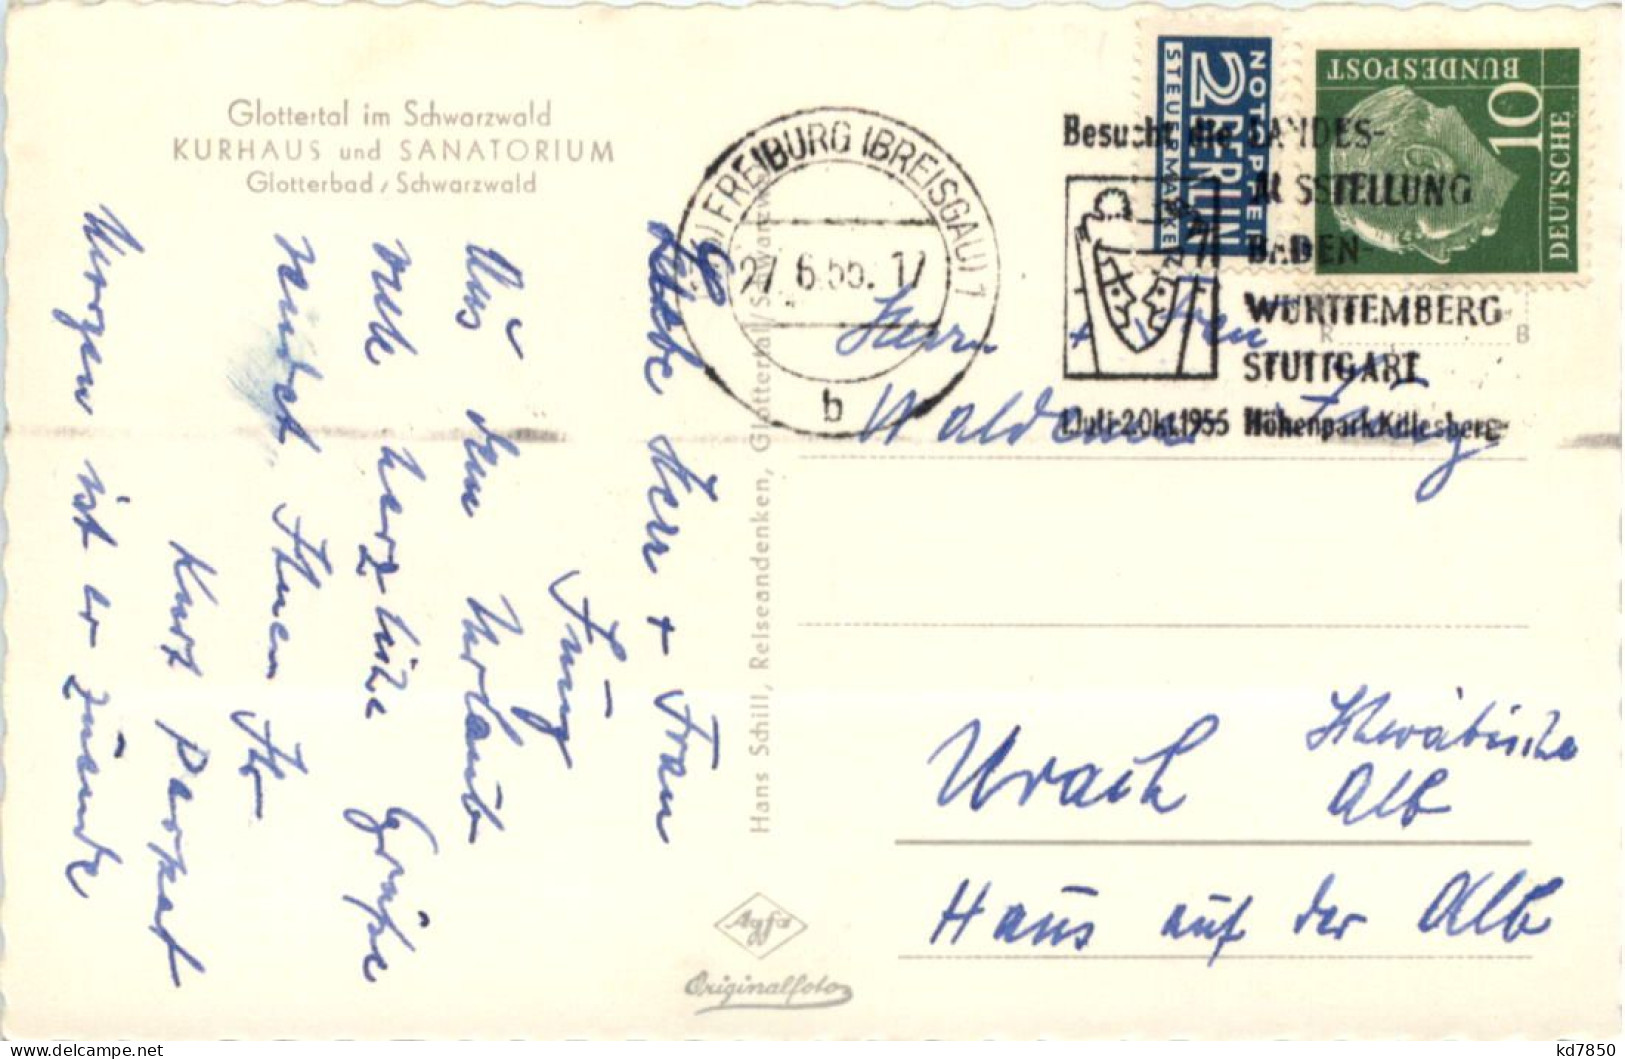 Glottertal im Schwarzwald
KURHAUS und SANATORIUM
Glotterbad / Schwarzwald
Liebe Herr + Frau
Füng
Aus dem Urlaub
viele herzliche Grüße
sendet Ihnen Ihr
Kurt
Morgen ist er zuende
Hans Schill, Reiseandenken, Glottertal/Schwarzw
Agfa
Originalfoto
FREIBURG (BREISGAU) 1
27.6.55.17
b
NOTOPFER
2 BERLIN
STEUERMARKE
10
DEUTSCHE
BUNDESPOST
Besucht die LANDES-
AUSSTELLUNG
BADEN-
WÜRTTEMBERG
STUTTGART
1.Juli-2.Okt.1955 Höhenpark Killesberg
Herrn + Frau
Waldemar
Urach Schwäbische
Alb
Haus auf der Alb
kd7850